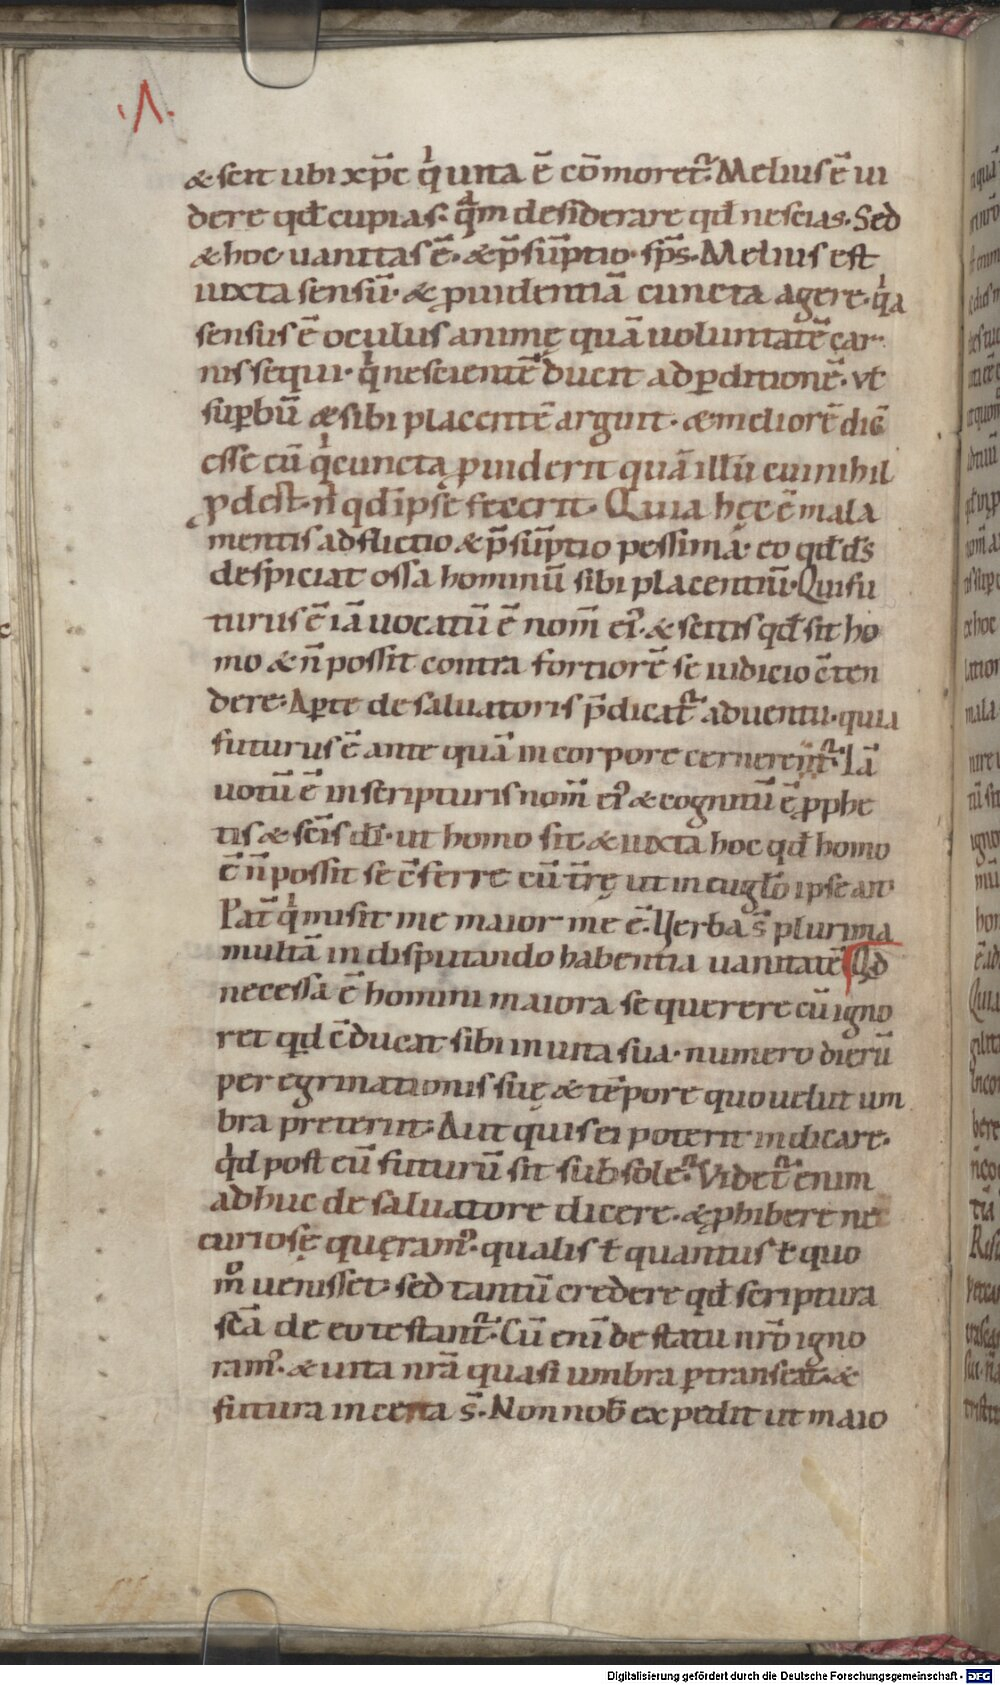 .Λ.
& scit ubi xp̄c qͥ uita ē cōmoret᷑. Melius ē ui
dere qđ cupias. qͣm desiderare qđ nescias. Sed
& hoc uanitas ē. & p̄sūptio sp̄s. Melius est
iuxta sensū. & ꝓuidentiā cuncta agere. qͥa
sensus ē oculus animę quā uoluntatē car
nis sequi. qͥ nescientē ducit ad ꝑditionē. vł
suꝑbū & sibi placentē arguit. & meliorē dic̄
esse eū qͥ cuncta ꝓuiderit quā illū cui nihil
ꝓdest. n̄ qđ ipse fecerit. Quia hęc ē mala
mentis adflictio & p̄sūptio pessima. eo qđ d̄s
despiciat ossa hominū sibi placentiū. Qui fu
turus ē iā uocatū ē nom̄ ei᾽. & scitis qđ sit ho
mo & n̄ possit contra fortiorē se iudicio c̄ten
dere. Aꝑte de saluatoris p̄dicat᷑ aduentu. quia
futurus ē ante quā in corpore cerneret᷑. Iā
uotū ē in scripturis nom̄ ei᾽ & cognitū ē ꝓphe
tis & sc̄is dī. ut homo sit & iuxta hoc qđ homo
ē n̄ possit se c̄ferre cū t̄rę ut in eugło ipse ait
Pat̄ qͥ misit me maior me ē. Verba s̄ plurima
multā in disputando habentia uanitatē Qđ
necessa ē homini maiora se querere cū igno
ret qđ c̄ducat sibi in uita sua. numero dierū
peregrinationis suę & tēpore quo uelut um
bra preterit. Aut quis ei poterit indicare.
qͥd post eū futurū sit sub sole᷑. Videt᷑ enim
adhuc de saluatore dicere. & ꝓhibere ne
curiosę queram᾽. qualis ł quantus ł quo
mͦ uenisset. sed tantū credere qđ scriptura
sc̄a de eo testant᷑. Cū enī de statu nr̄o igno
ram᾽. & uita nr̄a quasi umbra ꝑtranseat. &
futura incerta s̄. Non nob̄ expedit ut maio